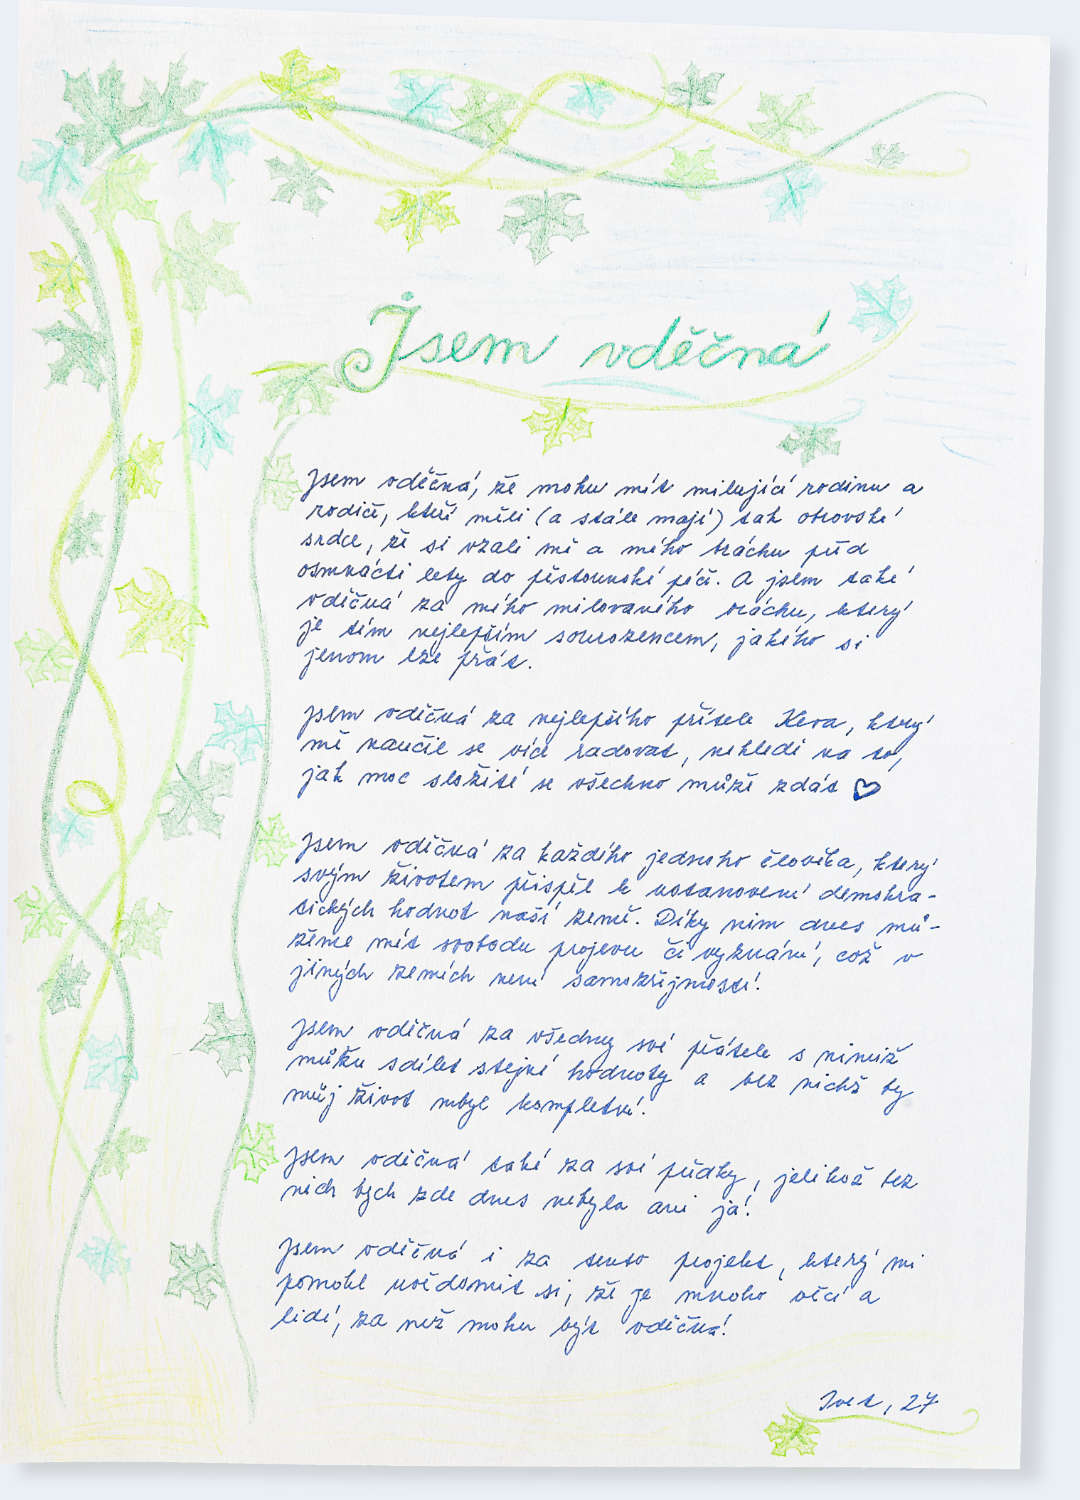 Jsem vděčná
Jsem vděčná, že mohu mít milující rodinu a
rodiče, kteří měli (a stále mají) tak obrovské
srdce, že si vzali mě a mého bráchu před
osmnácti lety do pěstounské péče. A jsem také
vděčná za mého milovaného bráchu, který
je tím nejlepším sourozencem, jakého si
jenom lze přát.
Jsem vděčná za nejlepšího přítele Keva, který
mě naučil se více radovat, nehledě na to,
jak moc složité se všechno může zdát
Jsem vděčná za každého jednoho člověka, který
svým životem přispěl k ustanovení demokra-
tických hodnot naší země. Díky nim dnes mů-
žeme mít svobodu projevu či vyznání, což v
jiných zemích není samozřejmostí.
Jsem vděčná za všechny své přátele s nimiž
můžu sdílet stejné hodnoty a bez nichž by
můj život nebyl kompletní.
Jsem vděčná také za své předky, jelikož bez
nich bych zde dnes nebyla ani já!
Jsem vděčná i za tento projekt, který mi
pomohl uvědomit si, že je mnoho věcí a
lidí, za něž mohu být vděčná!
Ivet, 27